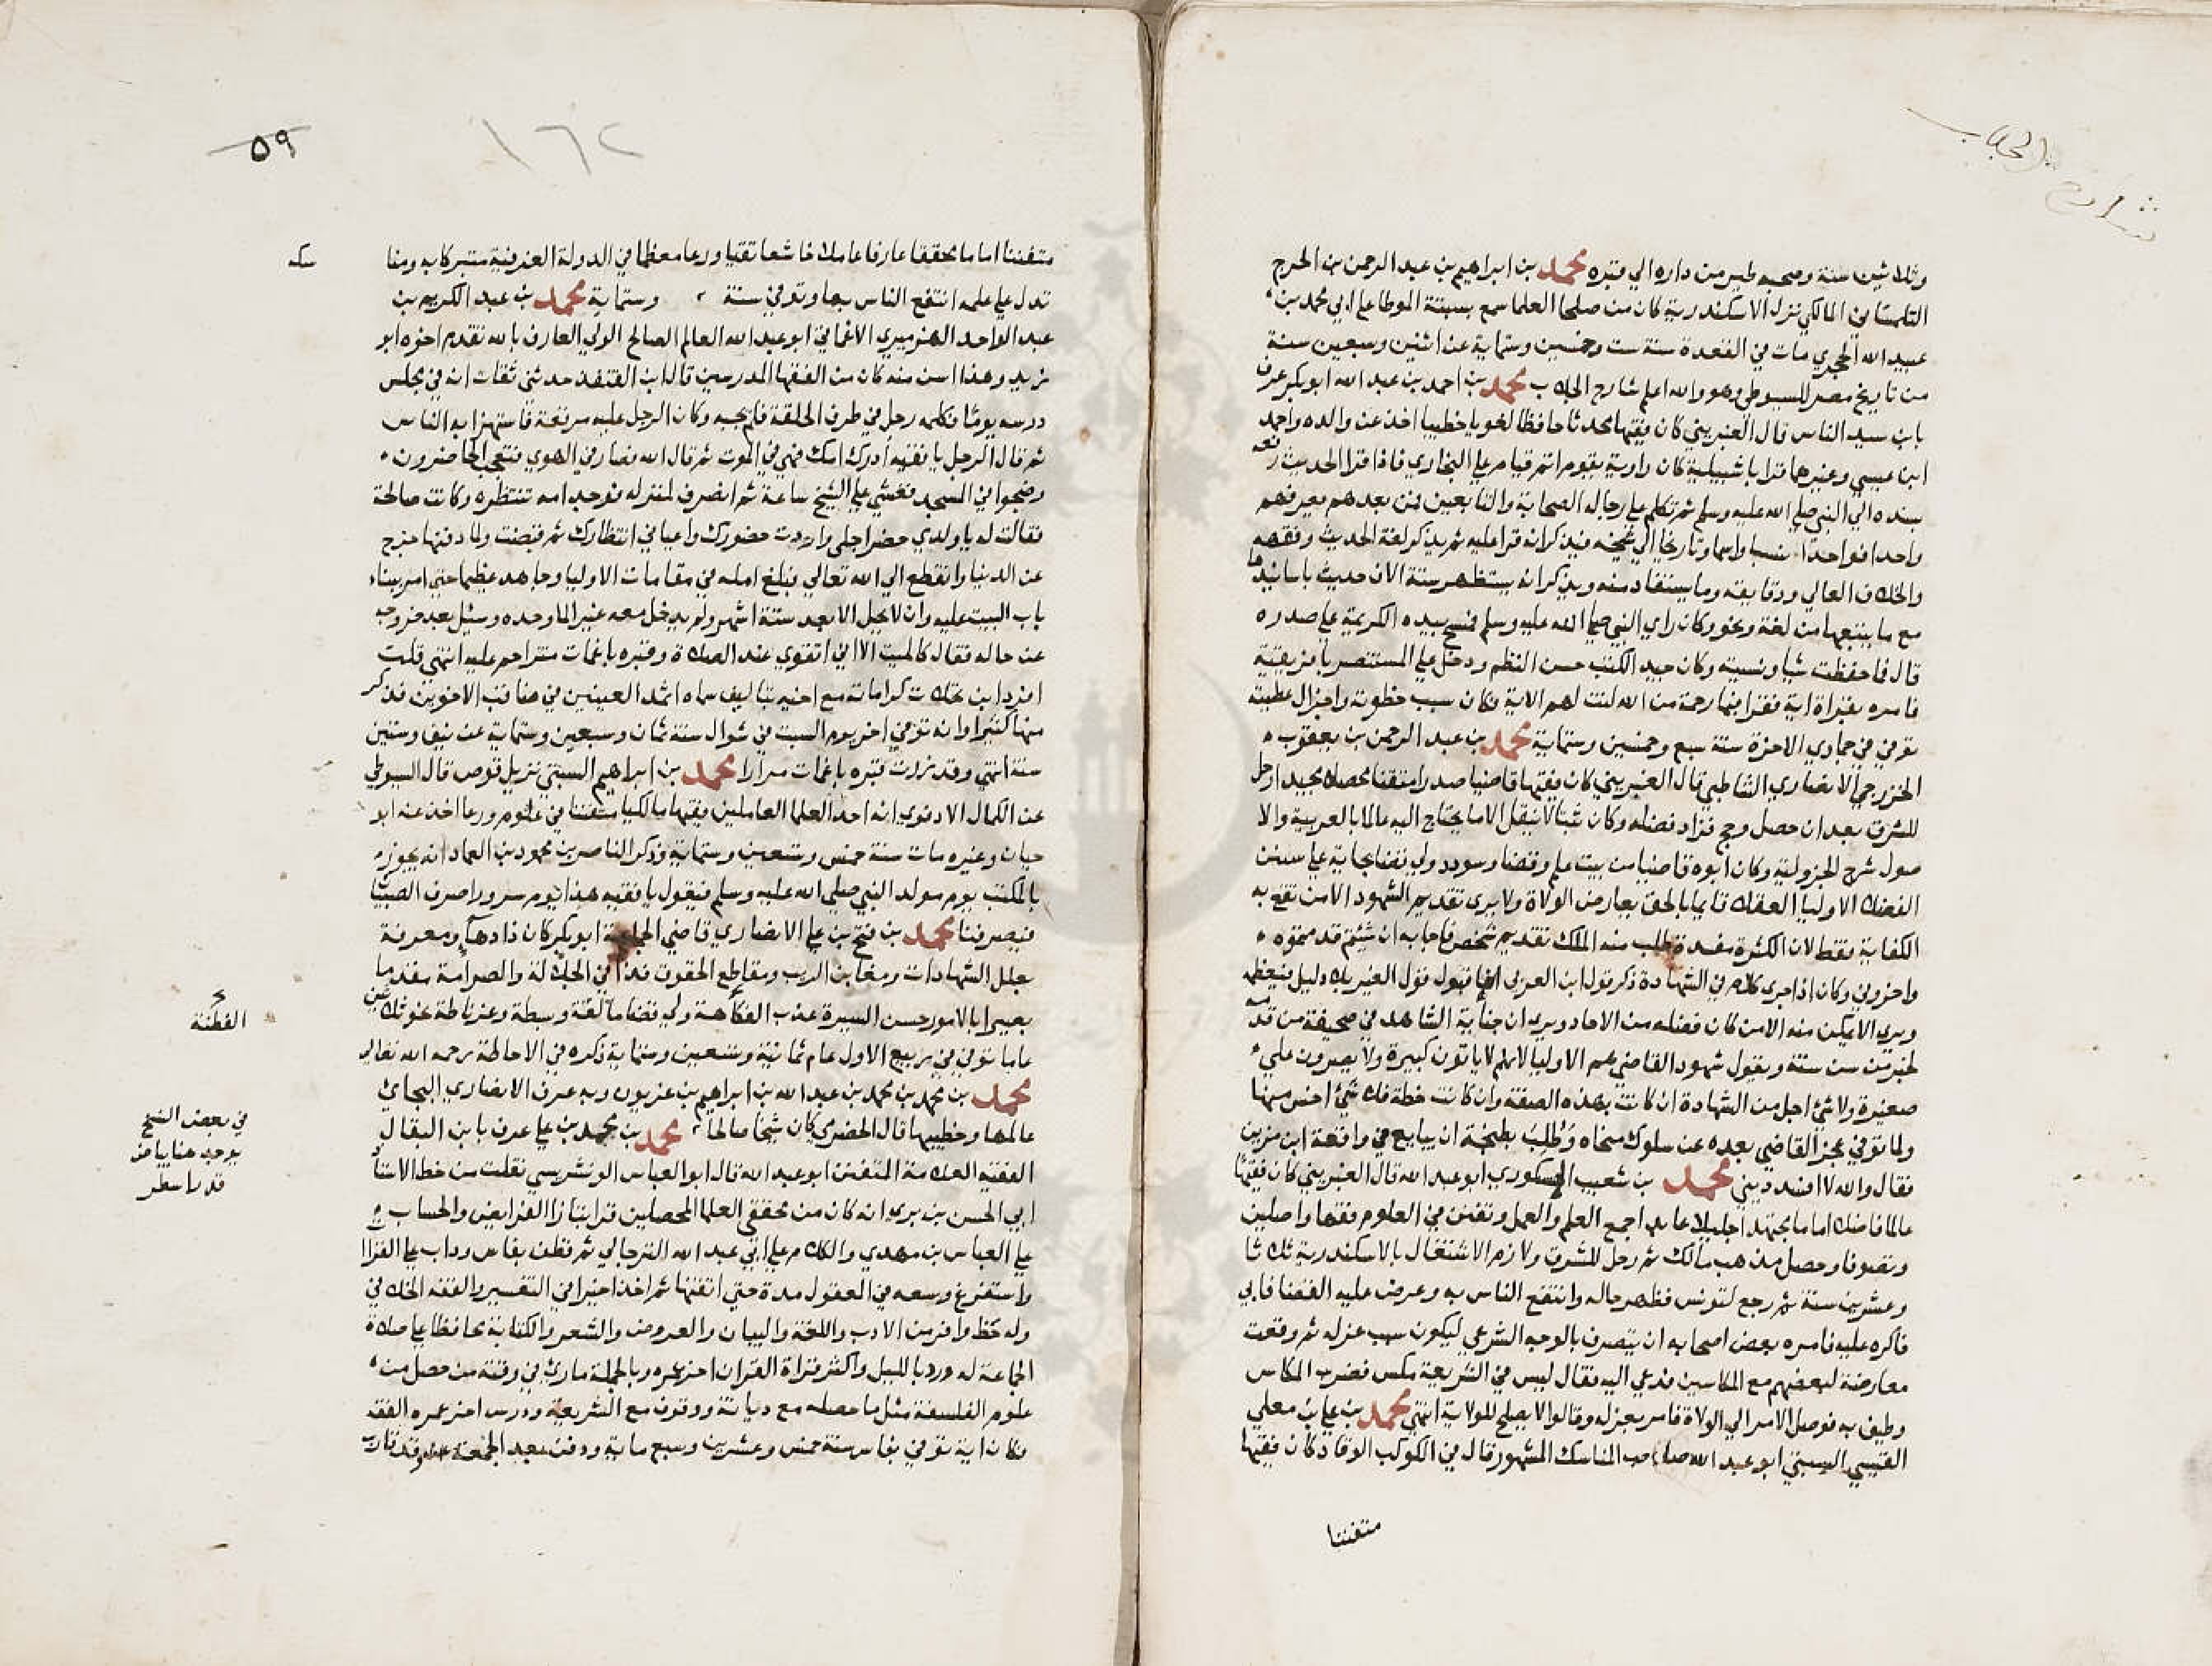 شارح الجلاب
وثلاثين سنة وصحبه طير من داره الي قبره محمد بن ابراهيم بن عبد الرحمن بن الحرج
التلمساني المالكي نزل الاسكندرية كان من صلحا العلما سمع بسبتة الموطا علي ابي محمد بن
عبيد الله الحجري مات في القعدة سنة ست وخمسين وستماية عن اثنين وسبعين سنة
من تاريخ مصر للسيوطي وهو والله اعلم شارح الجلاب محمد بن احمد بن عبد الله ابو بكر عرف
بابن سيد الناس قال الغبريني كان فقيها محدثا حافظا لغويا خطيبا اخذ عن والده واحمد
ابن عيسي وغيرهما قرا باشبيلية كان راوية يقوم اتم قيام علي البخاري فاذا قرا الحديث رفعه
بسنده الي النبي صلي الله عليه وسلم ثم تكلم علي رجاله الصحابة والتابعين فمن بعدهم يعرفهم
واحدا فواحدا نسبا واسما وتاريخا الي شيخه فيذكر انه قرا عليه ثم يذكر لغة الحديث وفقهه
والخلاف العالي ودقايقه وما يستفاد منه ويذكر انه يستظهر ستة الاف حديث باسانيدها
مع ما يتبعها من لغة ونحو وكان راي النبي صلي الله عليه وسلم فمسح بيده الكريمة علي صدره
قال فما حفظت شيا ونسيته وكان جيد الكتب حسن النظم ودخل علي المستنصر بافريقية
فامره بقراة اية فقرا فبما رحمة من الله لنت لهم الاية فكان سبب حظوته واجزال عطيته
توفي في جمادي الاخرة سنة سبع وخمسين وستماية محمد بن عبد الرحمن بن يعقوب
الخزرجي الانصاري الشاطبي قال الغبريني كان فقيها قاضيا صدرا متقنا محصلا مجيدا رحل
للشرق بعد ان حصل وحج فزاد فضله وكان ثبتا لا ينقل الا ما يحتاج اليه عالما بالعربية والا
صول شرح الجزولية وكان ابوه قاضيا من بيت علم وقضا وسودد ولي قضا بجاية علي سنن
الفضلا الاوليا العقلا قايما بالحق يعارض الولاة ولا يري تقديم الشهود الا من تقع به
الكفاية فقط لان الكثرة مفسدة طلب منه الملك تقديم شخص فاجابه ان شيتم قدمتموه
واخروني وكان اذا جري كلام في الشهادة ذكر قول ابن العربي انها قبول قول الغير بلا دليل فيعظمها
ويري الا يمكن منه الا من كان فضله من الاحاد ويري ان جناية الشاهد في صحيفة من قدمه
لخبر من سن سنة ويقول شهود القاضي هم الاوليا لانهم لا ياتون كبيرة ولا يصرون علي
صغيرة ولا شئ اجل من الشهادة ان كانت بهذه الصفة وان كانت خطة فلا شئ اخس منها
ولما توفي عجز القاضي بعده عن سلوك منحاه وطلب بطنجة ان يبايع في واقعة ابن مزين
فقال والله لا افسد ديني محمد بن شعيب الهسكوري ابو عبد الله قال الغبريني كان فقيها
عالما فاضلا اماما مجتهدا جليلا عابدا جمع العلم والعمل وتفنن في العلوم فقها واصلين
وتصوفا وحصل مذهب مالك ثم رحل للشرق ولازم الاشتغال بالاسكندرية ثلاثا
وعشرين سنة ثم رجع لتونس فظهر حاله وانتفع الناس به وعرض عليه القضا فابي
فاكره عليه فامره بعض اصحابه ان يتصرف بالوجه الشرعي ليكون سبب عزله ثم وقعت
معارضة لبعضهم مع المكاسين فدعي اليه فقال ليس في الشريعة مكس فضرب المكاس
وطيف به فوصل الامر الي الولاة فامر بعزله وقالوا لا يصلح للولاية انتهي محمد بن علي بن معلي
القيسي السبتي ابو عبد الله صاحب المناسك المشهور قال في الكوكب الوقاد كان فقيها
متفننا
٥٩
١٦٢
متفننا اماما محققا عارفا عاملا خاشعا تقيا ورعا معظما في الدولة العزفية متبركا به ومنا
سكه
تدل علي علمه انتفع الناس بها وتوفي سنة وستماية محمد بن عبد الكريم بن
عبد الواحد الهزميري الاغماتي ابو عبد الله العالم الصالح الولي العارف بالله تقدم اخوه ابو
زيد وهذا اسن منه كان من الفقها المدرسين قال ابن القنفذ حدثني ثقات انه في مجلس
درسه يوما فكلمه رجل في طرف الحلقة فلم يجبه وكان الرجل عليه مرقعة فاستهزا به الناس
ثم قال الرجل يا فقيه ادرك امك فهي في الموت ثم قال الله فصار في الهوي فتعجب الحاضرون
وضجوا في المسجد فغشي علي الشيخ ساعة ثم انصرف لمنزله فوجد امه تنتظره وكانت صالحة
فقالت له يا ولدي حضر اجلي واردت حضورك واعياني انتظارك ثم قبضت ولما دفنها خرج
عن الدنيا وانقطع الي الله تعالي فبلغ امله في مقامات الاوليا وجاهد عظيما حتي امر ببناء
باب البيت عليه وان لا يحل الا بعد ستة اشهر ولم يدخل معه غير الما وحده وسئل بعد خروجه
عن حاله فقال كالميت الا اني اتقوي عند الصلاة وقبره باغمات متراحم عليه انتهي قلت
افرد ابن تجلات كراماته مع اخيه بتاليف سماه اثمد العينين في مناقب الاخوين فذكر
منها كثيرا وانه توفي اخر يوم السبت في شوال سنة ثمان وسبعين وستماية عن نيف وستين
سنة انتهي وقد زرت قبره باغمات مرارا محمد بن ابراهيم السبتي نزيل قوص قال السيوطي
عن الكمال الادفوي انه احد العلما العاملين فقيها مالكيا متفننا في علوم ورعا اخذ عنه ابو
حيان وغيره مات سنة خمس وتسعين وستماية وذكر الناصر بن محمود بن العماد انه يجوزه
بالمكتب يوم مولد النبي صلي الله عليه وسلم فيقول يا فقيه هذا يوم سرور اصرف الصبيان
فيصرفنا محمد بن فتح بن علي الانصاري قاضي الجماعة ابو بكر كان ذا دهاء ومعرفة
بعلل الشهادات ومغابن الريب ومقاطع الحقوق فذا في الجلالة والصرامة مقدما
بصيرا بالامور حسن السيرة عذب الفكاهة ولي قضا مالقة وبسطة وغرناطة نحو ثلاثين
الفطنة
عاما توفي في ربيع الاول عام ثمانية وتسعين وستماية ذكره في الاحاطة رحمه الله تعالي
محمد بن محمد بن محمد بن عبد الله بن ابراهيم بن غريون وبه عرف الانصاري البجائي
عالمها وخطيبها قال الحضري كان شيخا صالحا محمد بن محمد بن علي عرف بابن البقال
في بعض النسخ
يوجد هنا بياض
قدر اسطر
الفقيه العلامة المتفنن ابو عبد الله قال ابو العباس الونشريسي نقلت من خط الاستاذ
ابي الحسن بن بري انه كان من محققي العلما المحصلين قرا بتازا الفرايض والحساب
علي العباس بن مهدي والكلام علي ابي عبد الله الترجالي ثم قطن بفاس وداب علي القرا
واستفرغ وسعه في العقول مدة حتي اتقنها ثم اخذ اخيرا في التفسير والفقه الخلافي
وله حظ وافر من الادب واللغة والبيان والعروض والشعر والكتابة محافظا علي صلاة
الجماعة له ورد بالليل واكثر قراة القران اخر عمره وبالجملة ما رئ في وقته من حصل من
علوم الفلسفة مثل ما حصله مع ديانة ووقوف مع الشريعة ودرس اخر عمره الفقه
فكان اية توفي بفاس سنة خمس وعشرين وسبع ماية ودفن بعد الجمعة وقد قارب